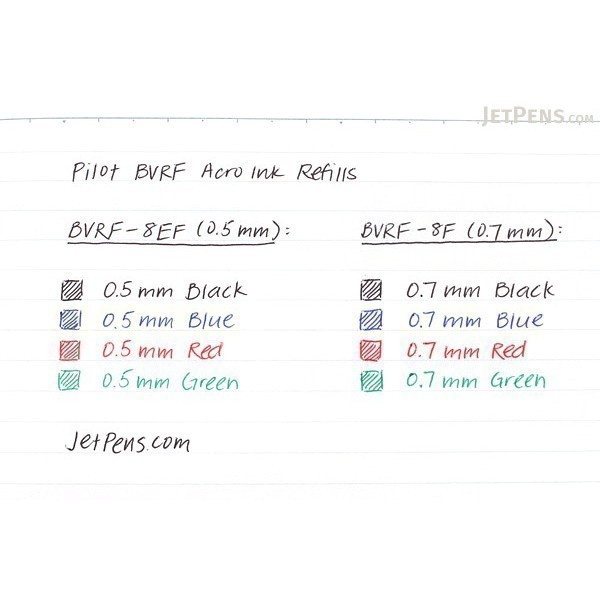 JetPens.com
Pilot BVRF Acro Ink Refills
BVRF-8EF (0.5mm):
0.5mm Black
0.5mm Blue
0.5mm Red
0.5mm Green
BVRF-8F (0.7mm):
0.7mm Black
0.7mm Blue
0.7mm Red
0.7mm Green
JetPens.com